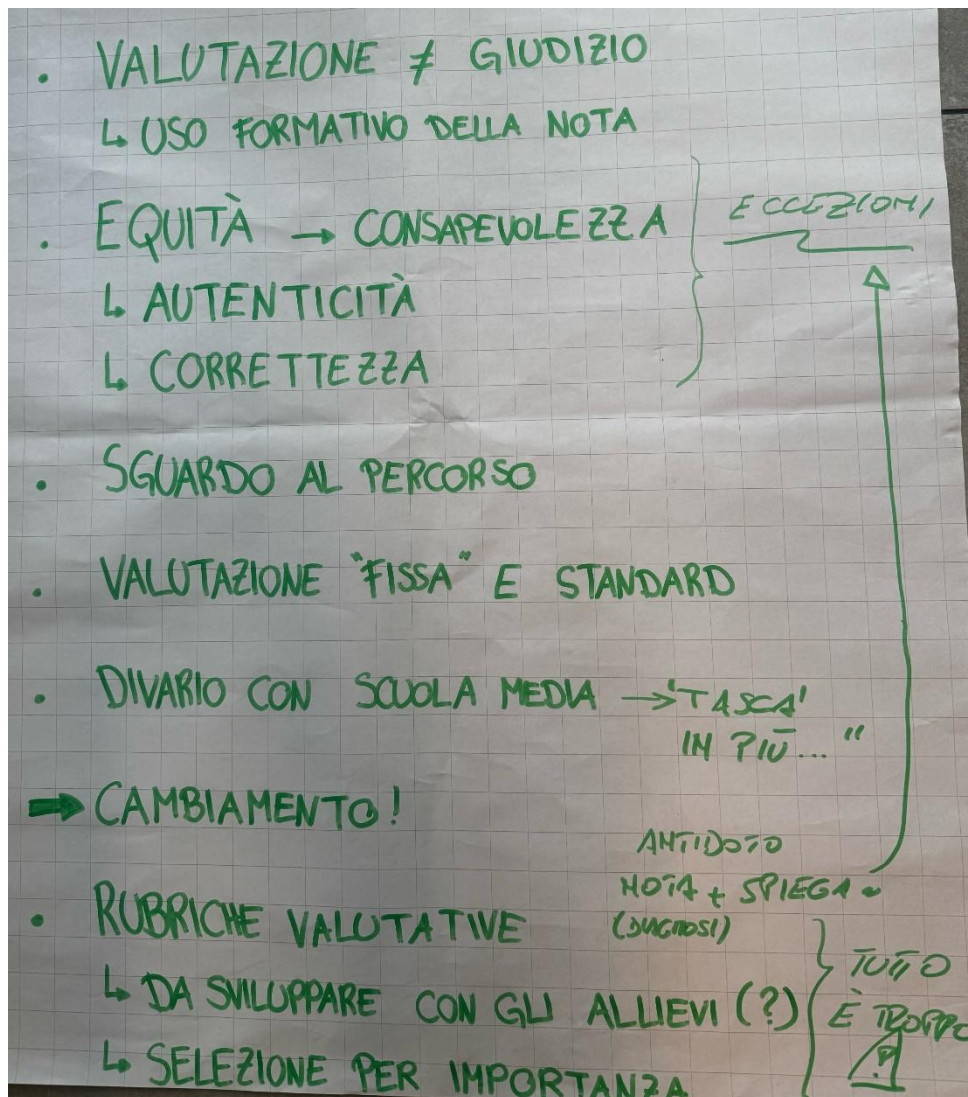 . VALUTAZIONE ≠ GIUDIZIO
↳ USO FORMATIVO DELLA NOTA
. EQUITÀ → CONSAPEVOLEZZA
ECCEZIONI
↳ AUTENTICITÀ
↳ CORRETTEZZA
. SGUARDO AL PERCORSO
. VALUTAZIONE "FISSA" E STANDARD
. DIVARIO CON SCUOLA MEDIA → 'TASCA'
IN PIÙ... "
➡ CAMBIAMENTO!
ANTIDOTO
NOTA + SPIEGA
(DIAGNOSI)
. RUBRICHE VALUTATIVE
↳ DA SVILUPPARE CON GLI ALLIEVI (?)
↳ SELEZIONE PER IMPORTANZA
TUTTO
È TROPPO